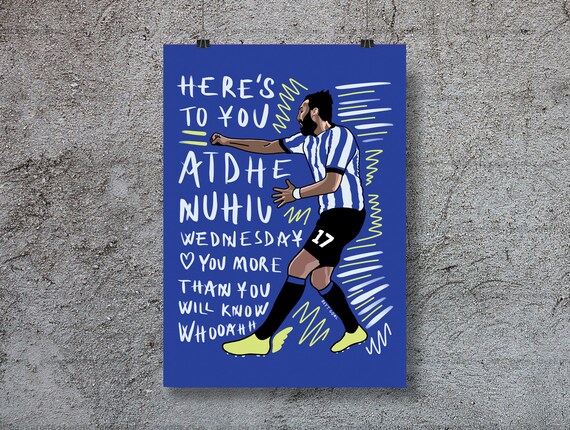 HERE'S
TO YOU
ATDHE
NUHIU
WEDNESDAY
♡ YOU MORE
THAN YOU
WILL KNOW
WHOOAHH
17